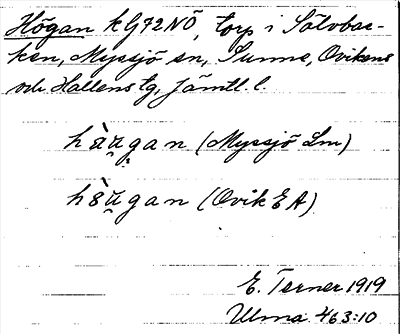 Högan kG72NÖ, torp i Sätvbac-
ken, Myssjö sn, Sunne, Ovikens
och Hallens tg, Jämtl. l.
hàu̯gan (Myssjö Lm)
hàu̯gan (Ovik EA)
E. Terner 1919
Ulma 463:10